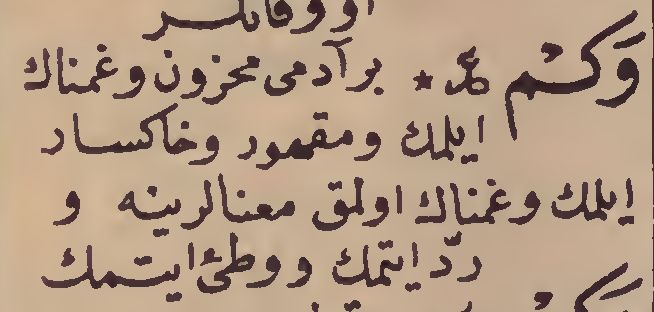 وَكْم ٭ بر آدمى محزون وغمناك
ايلمك ومقهور وخاكسار
ايلمك وغمناك اولمق معنالرينه و
ردّ ايتمك و وطئ ايتمك